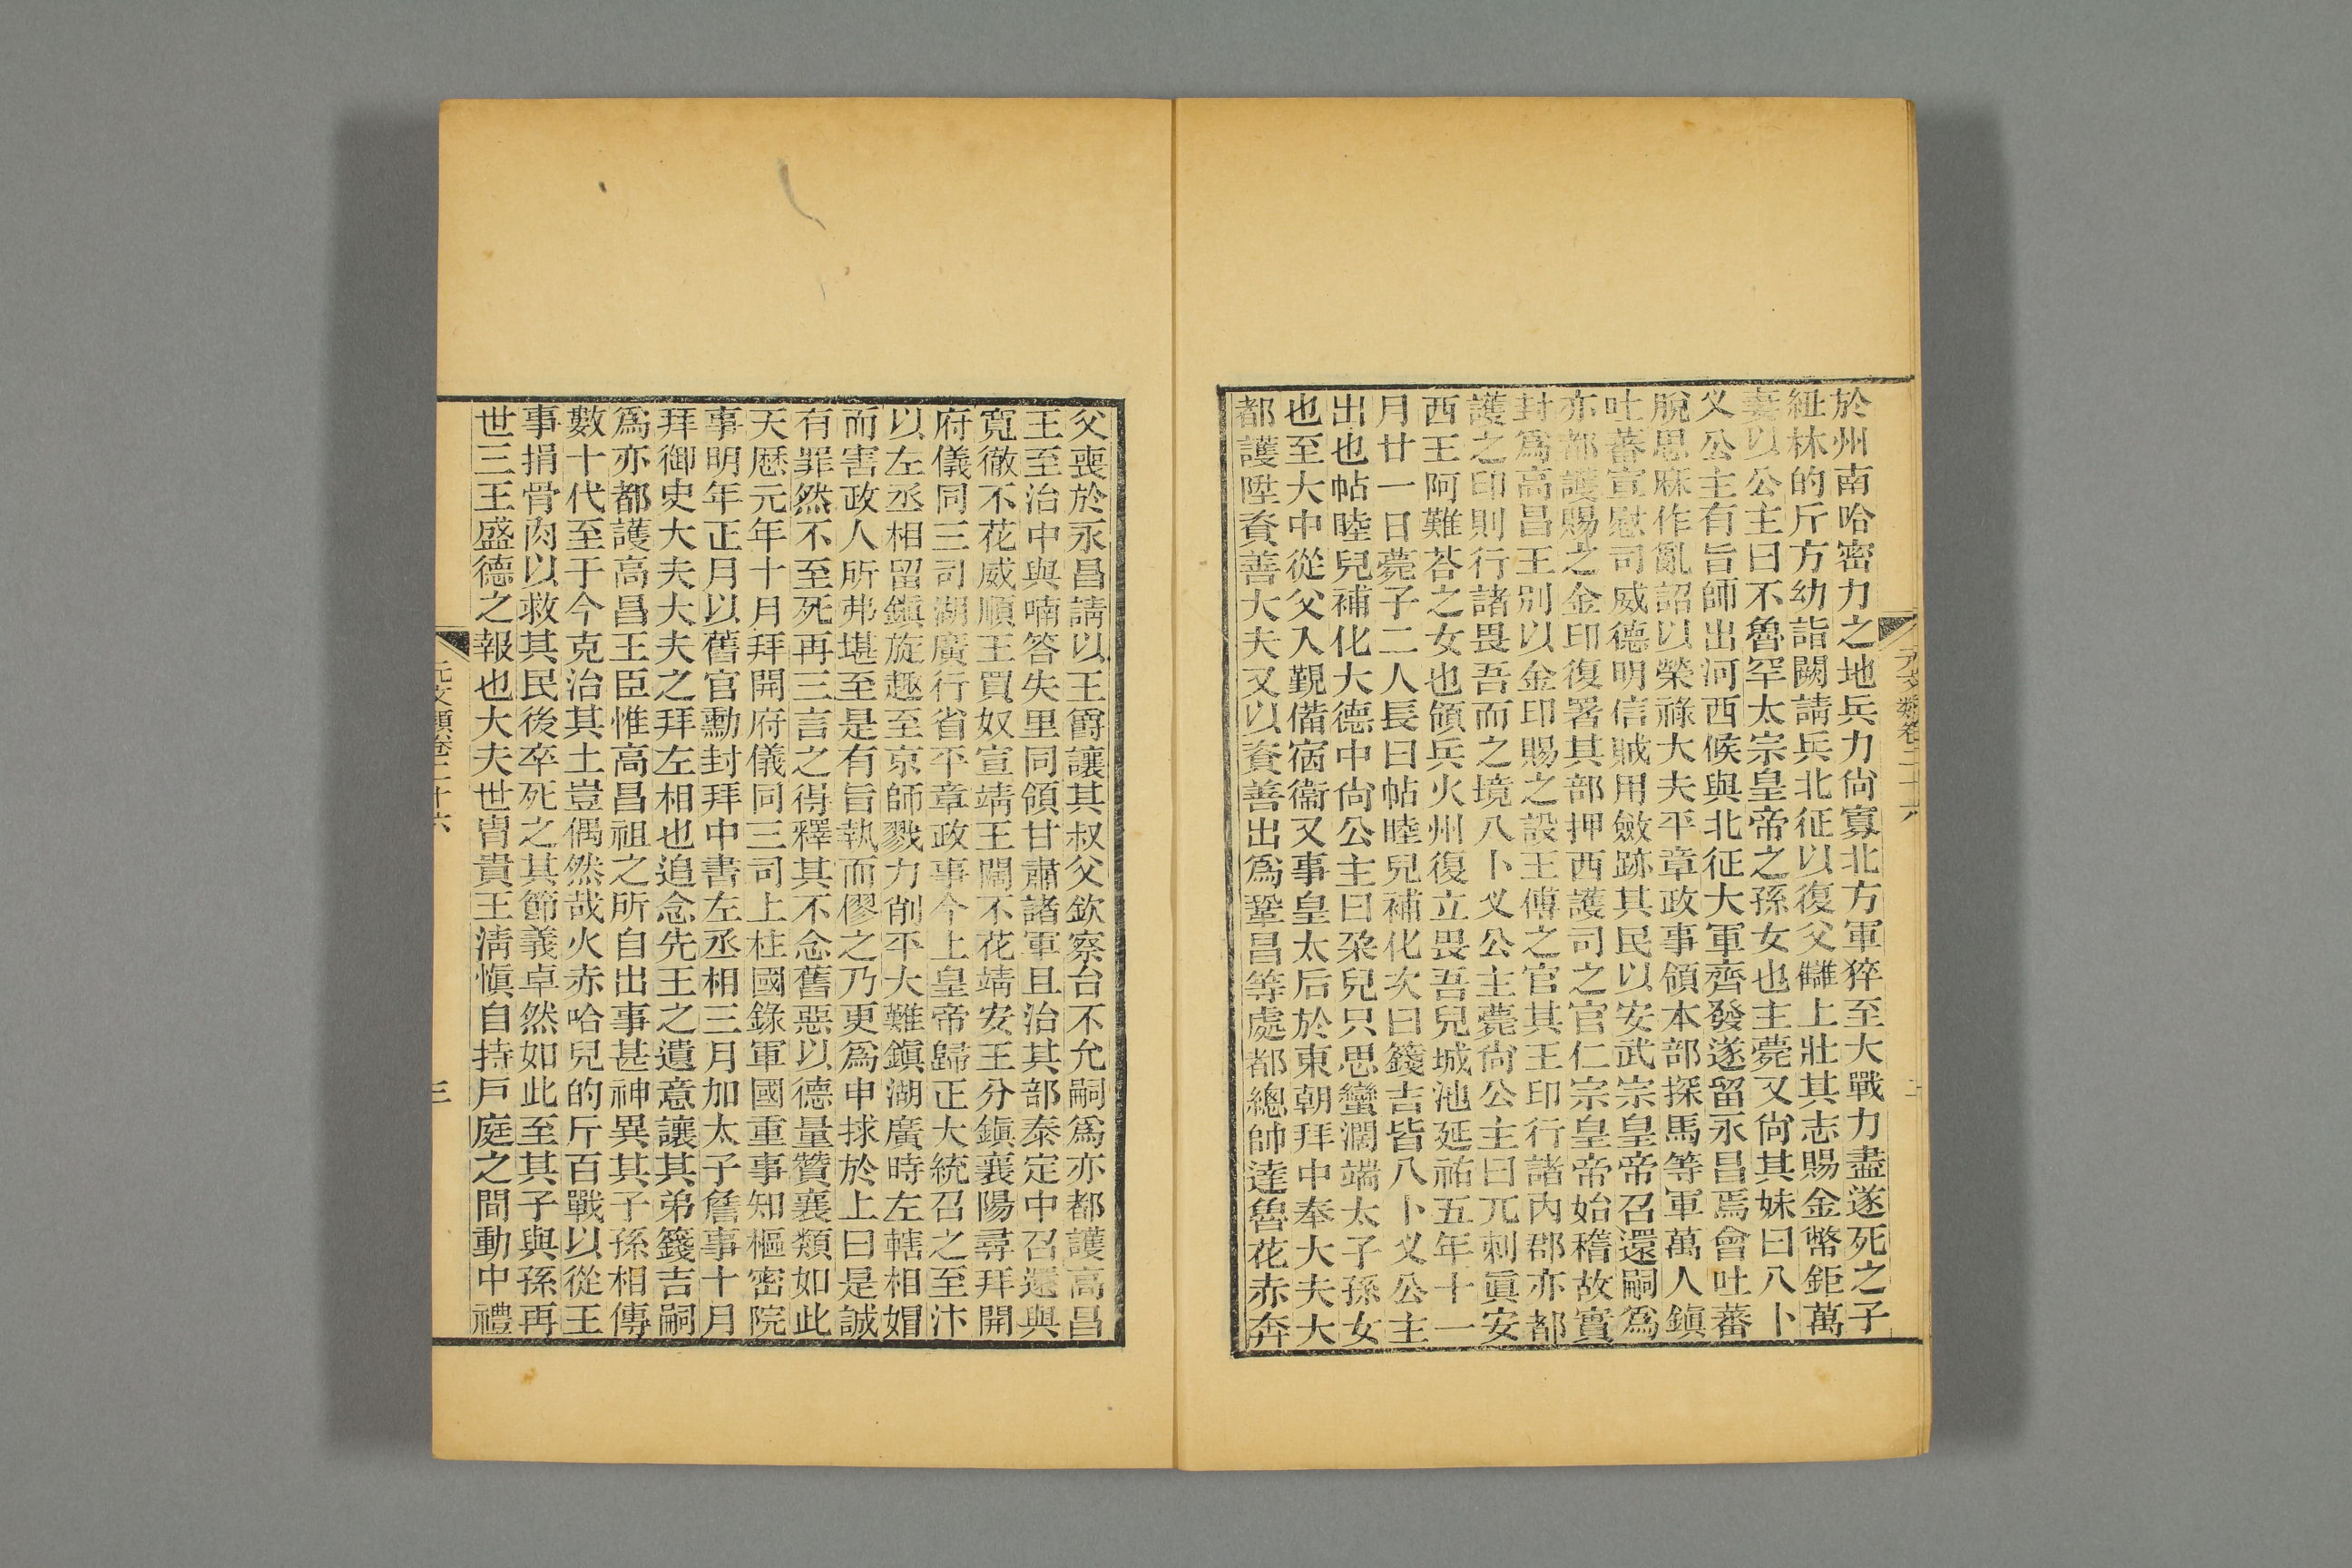 於州南哈密力之地兵力尙寡北方軍猝至大戰力盡遂死之子
紐林的斤方幼詣闕請兵北征以復父讎上壯其志賜金幣鉅萬
妻以公主曰不魯罕太宗皇帝之孫女也主薨又尙其妹曰八卜
义公主有旨師出河西候與北征大軍齊發遂留永昌焉會吐蕃
脫思麻作亂詔以榮祿大夫平章政事領本部探馬等軍萬人鎭
吐蕃宣慰司威德明信賊用斂跡其民以安武宗皇帝召還嗣爲
亦都護賜之金印復署其部押西護司之官仁宗皇帝始稽故實
封爲高昌王別以金印賜之設王傅之官其王印行諸內郡亦都
護之印則行諸畏吾而之境八卜义公主薨尙公主曰兀刺眞安
西王阿難荅之女也領兵火州復立畏吾兒城池延祐五年十一
月廿一日薨子二人長曰帖睦兒補化次曰籛吉皆八卜义公主
出也帖睦兒補化大德中尙公主曰朶兒只思蠻濶端太子孫女
也至大中從父入覲備宿衞又事皇太后於東朝拜中奉大夫大
都護陞資善大夫又以資善出爲鞏昌等處都總帥達魯花赤奔
父喪於永昌請以王爵讓其叔父欽察台不允嗣爲亦都護高昌
王至治中與喃答失里同領甘肅諸軍且治其部泰定中召還與
寬徹不花威順王買奴宣靖王闊不花靖安王分鎭襄陽尋拜開
府儀同三司湖廣行省平章政事今上皇帝歸正大統召之至汴
以左丞相留鎭旋趣至京師戮力削平大難鎭湖廣時左轄相媢
而害政人所弗堪至是有旨執而僇之乃更爲申捄於上曰是誠
有罪然不至死再三言之得釋其不念舊惡以德量贊襄類如此
天歷元年十月拜開府儀同三司上柱國錄軍國重事知樞密院
事明年正月以舊官勳封拜中書左丞相三月加太子詹事十月
拜御史大夫大夫之拜左相也追念先王之遺意讓其弟籛吉嗣
爲亦都護高昌王臣惟高昌祖之所自出事甚神異其子孫相傳
數十代至于今克治其土豈偶然哉火赤哈兒的斤百戰以從王
事捐骨肉以救其民後卒死之其節義卓然如此至其子與孫再
世三王盛德之報也大夫世胄貴王淸愼自持戶庭之間動中禮
元文類卷三十六
三